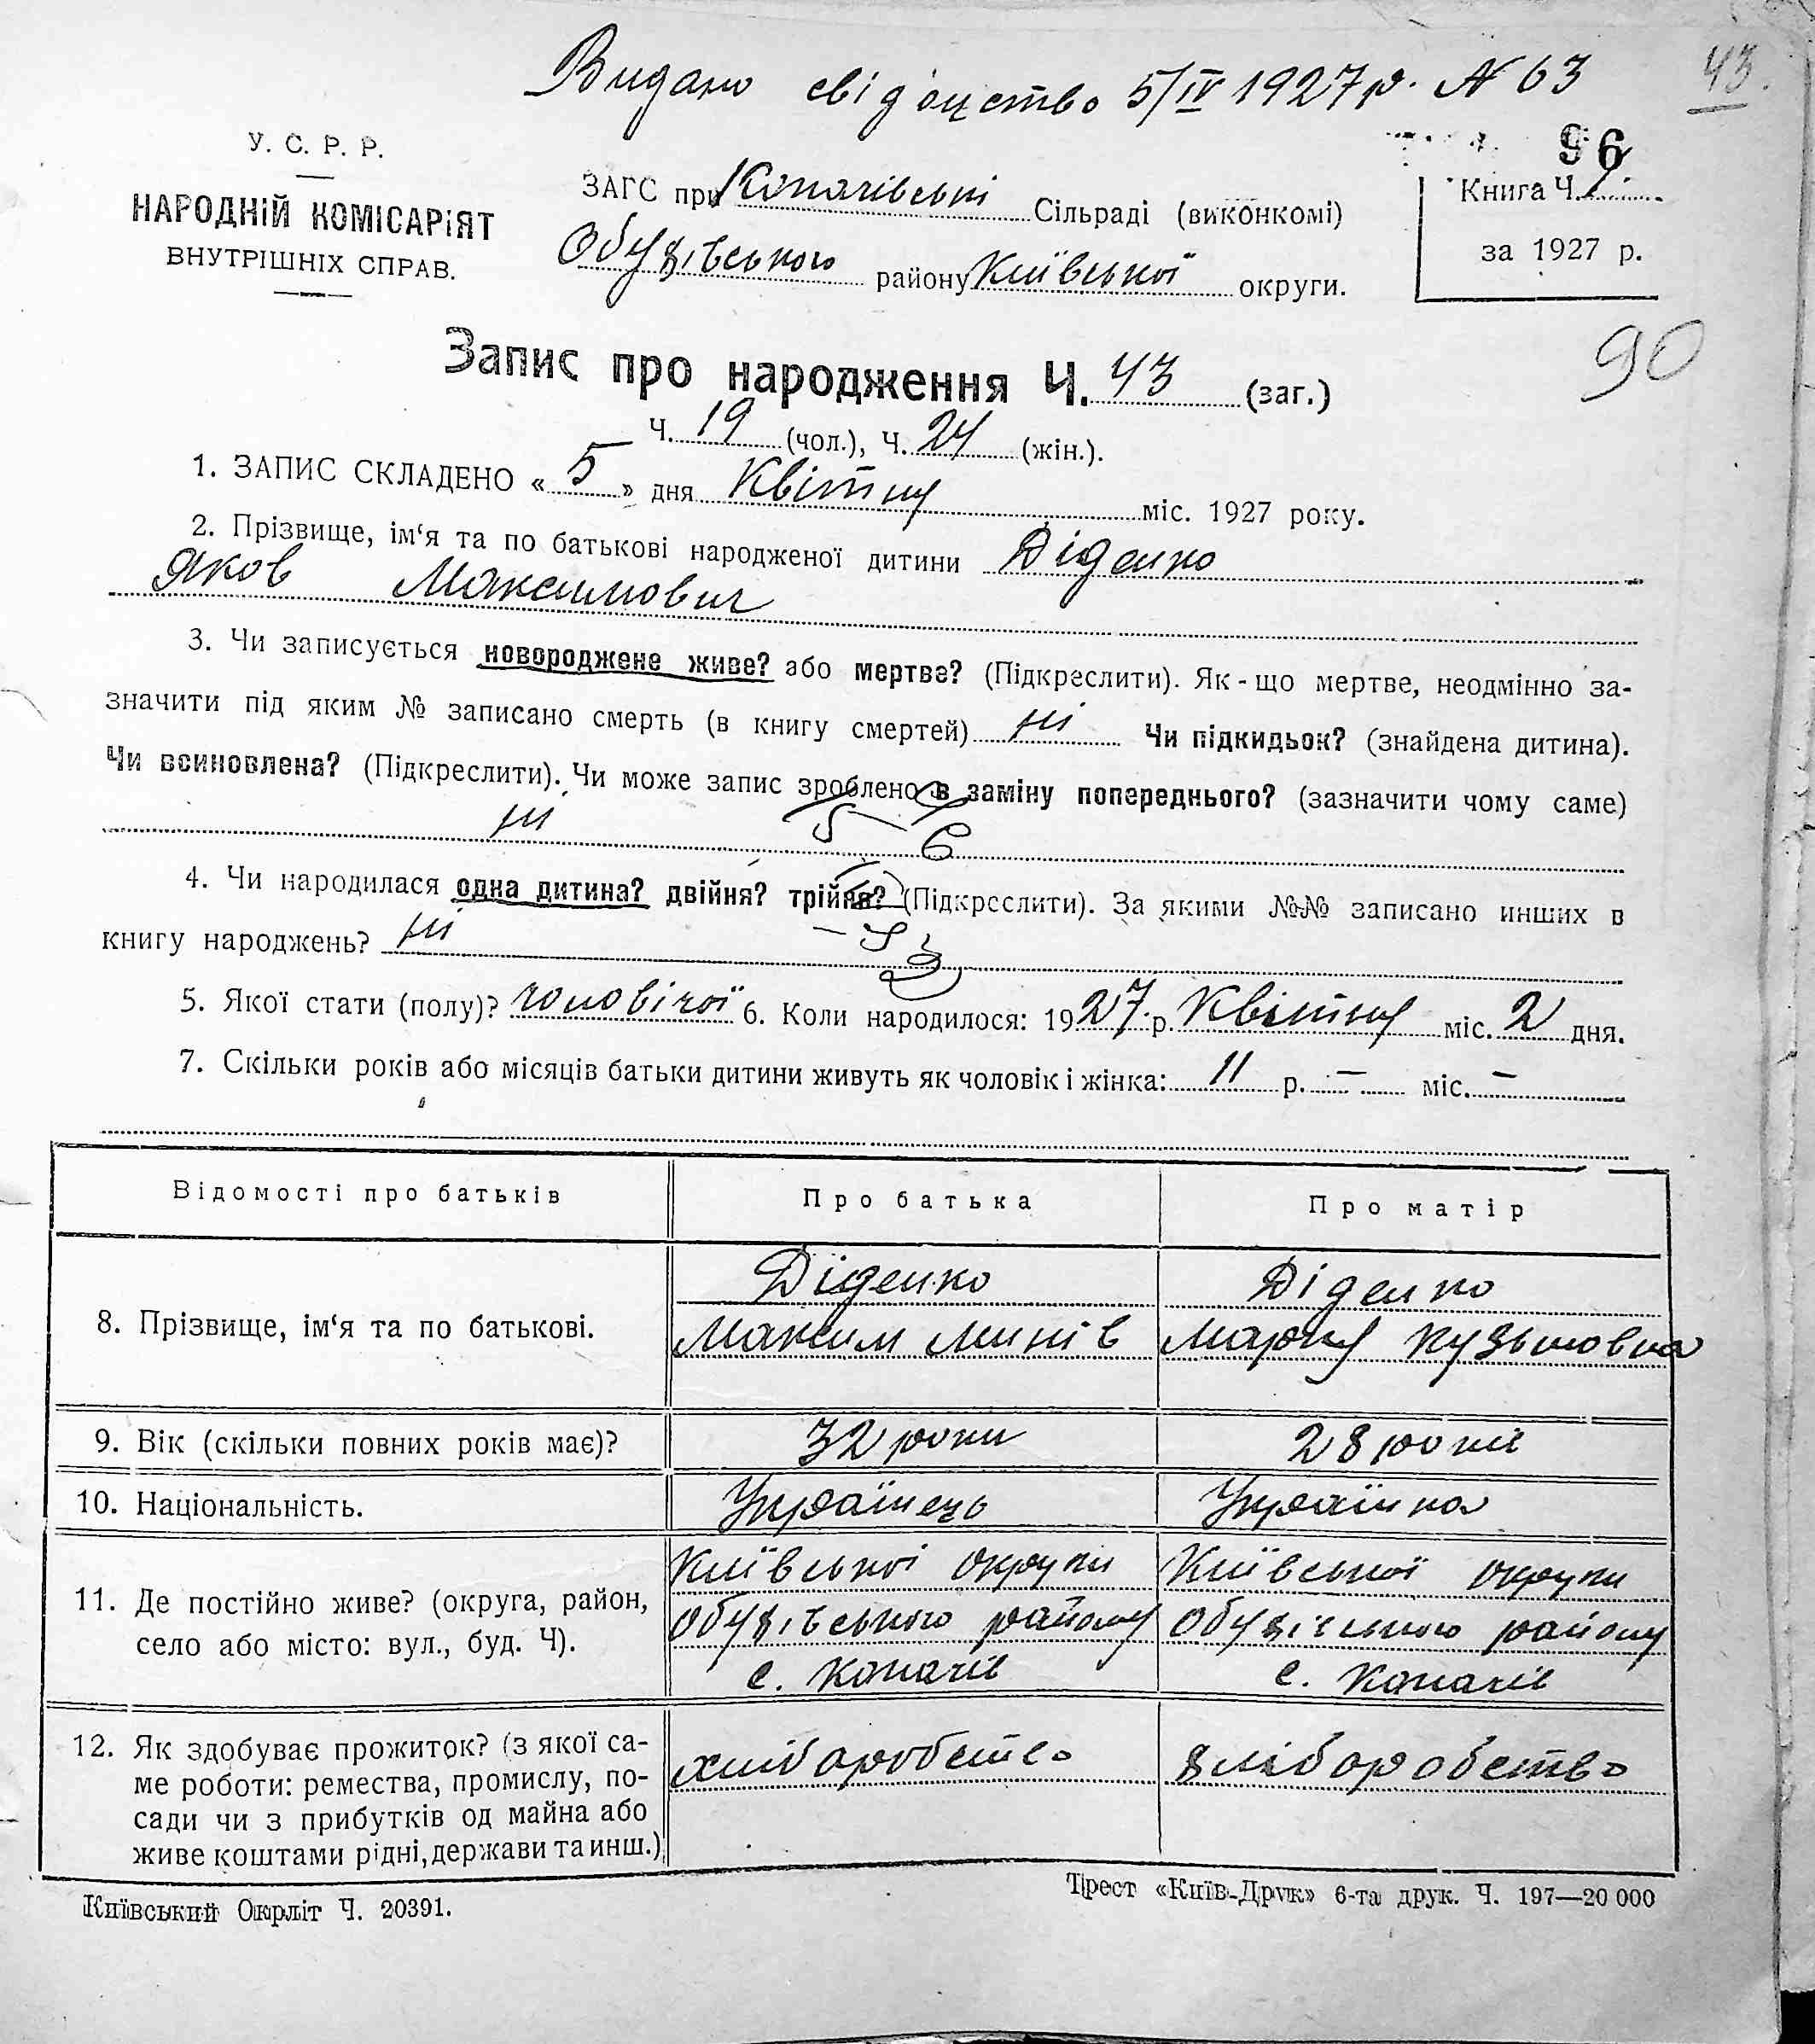 Видано свідоцтво 5/IV 1927 р. № 63
43.
96
У. С. Р. Р.
НАРОДНІЙ КОМІСАРІЯТ
ВНУТРІШНІХ СПРАВ.
ЗАГС при Копачівські Сільраді (виконкомі)
Обухівського району Київської округи.
Книга Ч. 1
за 1927 р.
90
Запис про народження Ч. 43 (заг.)
Ч. 19 (чол.), Ч. 24 (жін.).
1. ЗАПИС СКЛАДЕНО « 5 » дня Квітня міс. 1927 року.
2. Прізвище, ім‘я та по батькові народженої дитини Діденко
Яков Максимович
3. Чи записується новороджене живе? або мертве? (Підкреслити). Як-що мертве, неодмінно за-
значити під яким № записано смерть (в книгу смертей) ні Чи підкидьок? (знайдена дитина).
Чи всиновлена? (Підкреслити). Чи може запис зроблено в заміну попереднього? (зазначити чому саме)
ні
4. Чи народилася одна дитина? двійня? трійня? (Підкреслити). За якими №№ записано инших в
книгу народжень? ні
5. Якої стати (полу)? чоловічої 6. Коли народилося: 1927 р. Квітня міс. 2 дня.
7. Скільки років або місяців батьки дитини живуть як чоловік і жінка: 11 р. — міс. —
Відомості про батьків Про батька Про матір
8. Прізвище, ім‘я та по батькові.
Діденко
Максим Минів
Діденко
Мария Кузьмовна
9. Вік (скільки повних років має)? 32 роки 28 років
10. Національність. Українець Українка
11. Де постійно живе? (округа, район,
село або місто: вул., буд. Ч).
Київської округи
Обухівського району
с. Копачів
Київської округи
Обухівського району
с. Копачів
12. Як здобуває прожиток? (з якої са-
ме роботи: ремества, промислу, по-
сади чи з прибутків од майна або
живе коштами рідні, держави та инш.)
хліборобство
хліборобство
Київський Окрліт Ч. 20391.
Трест «Київ-Друк» 6-та друк. Ч. 197—20 000